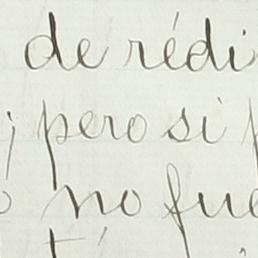 de rédi
; pero si p
o no fue